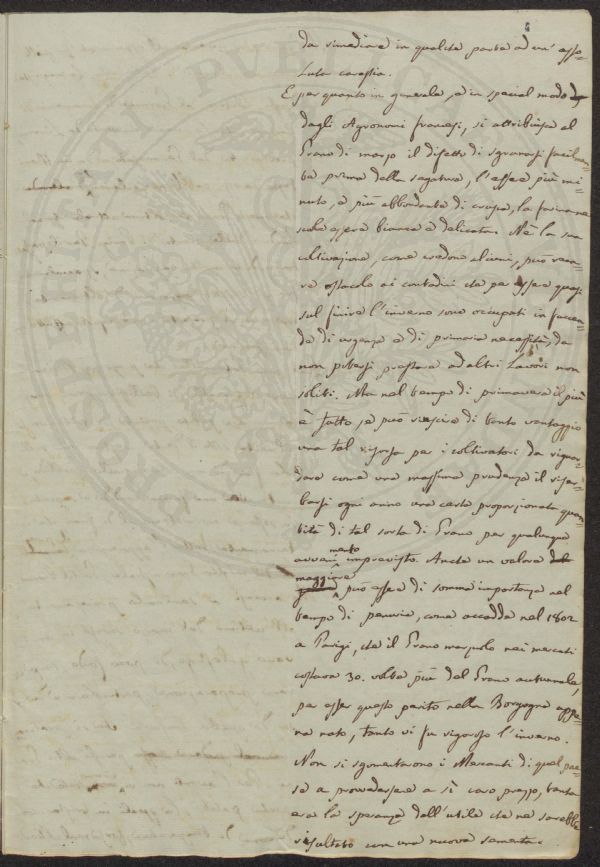 da rimediare in qualche parte ad un' asso=
luta carestia.
E per quanto in generale, e in special modo
dagli Agronomi francesi, si attribuisca al
Grano di marzo il difetto di sgranarsi facilmen=
te prima della segatura, l'essere più mi
nuto, e più abbondante di crusca, la farina ne
suole essere bianca e delicata. Nè la sua
coltivazione, come credono alcuni, può reca=
re ostacolo ai contadini che per essere quasi
sul finire l'inverno sono occupati in faccen=
de di urgenza e di primaria necessità, da
non potersi prestare ad altri lavori non
soliti. Ma nel tempo di primavera il più
è fatto, e può riescire di tanto vantaggio
una tal risorsa per i coltivatori da riguar=
dare come una massima prudenza il riser=
barsi ogni anno una certa proporzionata quan=
tità di tal sorta di Grano per qualunque
avvenimento imprevisto. Anche un valore
maggiore può essere di somma importanza nel
tempo di penuria, come accadde nel 1802
a Parigi, che il Grano marzuolo nei mercati
costava 30. volte più del Grano autunnale,
per esser questo perito nella Borgogna appe=
na nato, tanto vi fu rigoroso l'inverno.
Non si sgomentarono i Mercanti di quel pae=
se a provvedersene a sì caro prezzo, tanta
era la speranza dell'utile che ne sarebbe
risultato con una nuova sementa.
PROSPERITATI PUBLICAE